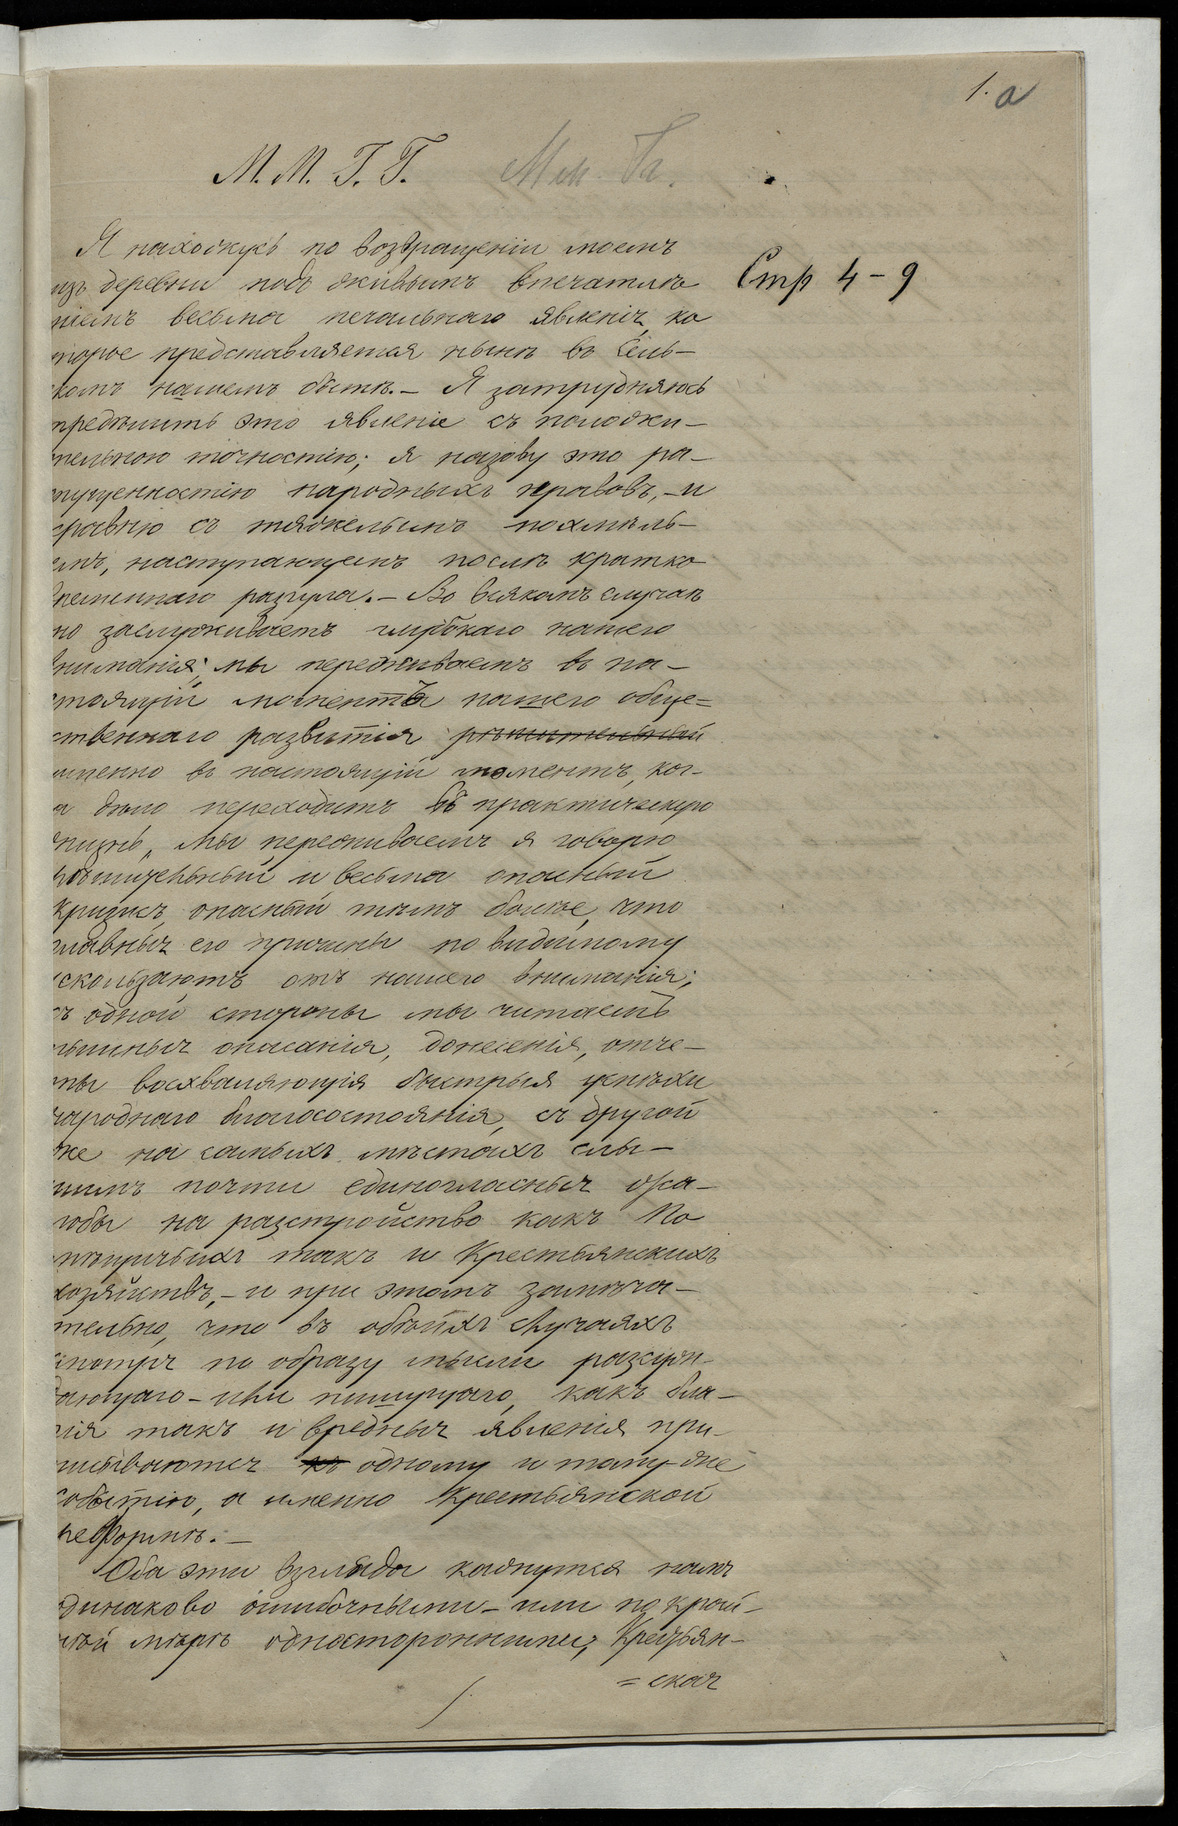 1. а
М. М. Г. Г. Мм. Гг.
Я нахожусь по возвращеніи моемъ
изъ деревни подъ живымъ впечатлѣ
ніемъ весьма печальнаго явленія, ко
торое представляется нынѣ въ Сель-
комъ нашемъ бытѣ. – Я затрудняюсь
предѣлить это явленіе съ положи-
тельною точностію; я назову это ра-
пущенностію народныхъ нравовъ, – и
сравню съ тяжелымъ похмѣль-
емъ, наступающемъ послѣ кратко
временнаго разгула. – Во всякомъ случаѣ
но заслуживаетъ глубокаго нашего
вниманія; мы переживаемъ въ на-
стоящій моментъ нашего обще=
ственнаго развитія рѣшительный
именно въ настоящій моментъ, ког-
а дѣло переходитъ въ практическую
жизнь, мы переживаемъ я говорю
рѣшительный и весьма опасный
кризисъ, опасный тѣмъ болѣе, что
главныя его причины по видимому
скользаютъ отъ нашего вниманія;
съ одной стороны мы читаемъ
описанія, донесенія, отче-
ты восхваляющія быстрыя успѣхи
народнаго благосостоянія, съ другой
же на самыхъ мѣстахъ слы-
шимъ почти единогласныя жа-
лобы на разстройство какъ По
мѣщичьихъ такъ и Крестьянскихъ
хозяйствъ, – и при этомъ замѣча-
тельно, что въ обѣихъ случаяхъ
смотря по образу мысли разсуж-
дающаго – или пишущаго, какъ бла-
гія такъ и вредныя явленія при-
писываются къ одному и тому-же
событію, а именно Крестьянской
реформѣ. –
Оба эти взгляда кажутся намъ
одинаково ошибочными – или по край-
ней мѣрѣ односторонними; Крестьян-
= ская
Стр 4 – 9